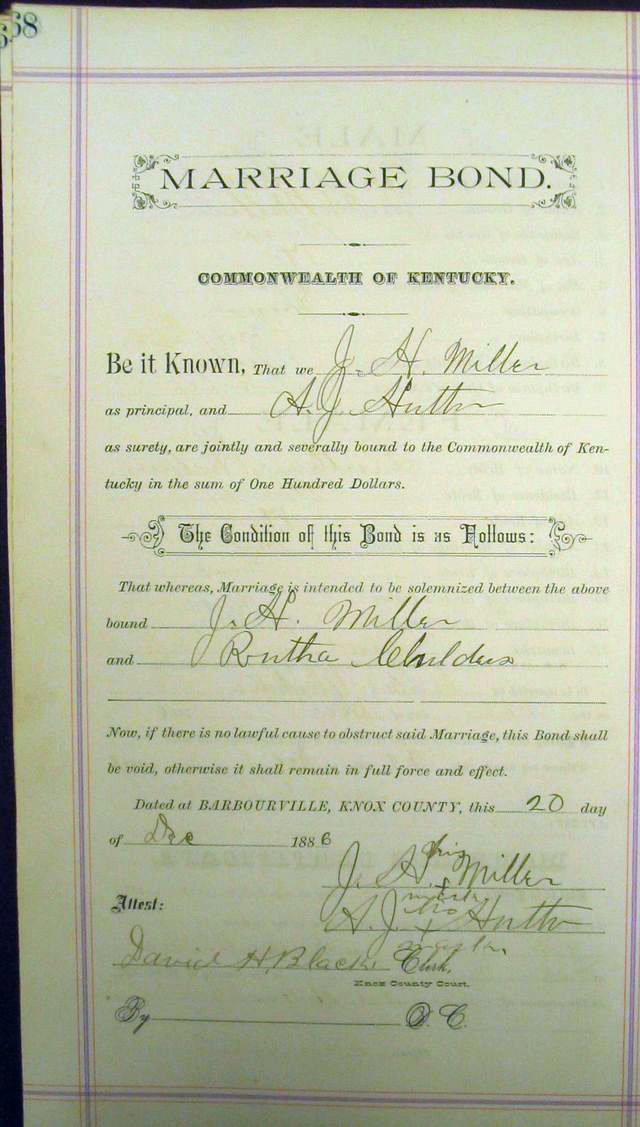 68
MARRIAGE BOND.
COMMONWEALTH OF KENTUCKY.
Be it Known, That we J. H. Miller
as principal, and A. J. Hutton
as surety, are jointly and severally bound to the Commonwealth of Ken-
tucky in the sum of One Hundred Dollars.
The Condition of this Bond is as Follows:
That whereas, Marriage is intended to be solemnized between the above
bound J. H. Miller
and Rutha Childers
Now, if there is no lawful cause to obstruct said Marriage, this Bond shall
be void, otherwise it shall remain in full force and effect.
Dated at BARBOURVILLE, KNOX COUNTY, this 20 day
of Dec 1886
his
J. H. x Miller
mark
Attest:
his
A. J. x Hutton
mark
David H. Black Clerk,
Knox County Court.
By D. C.